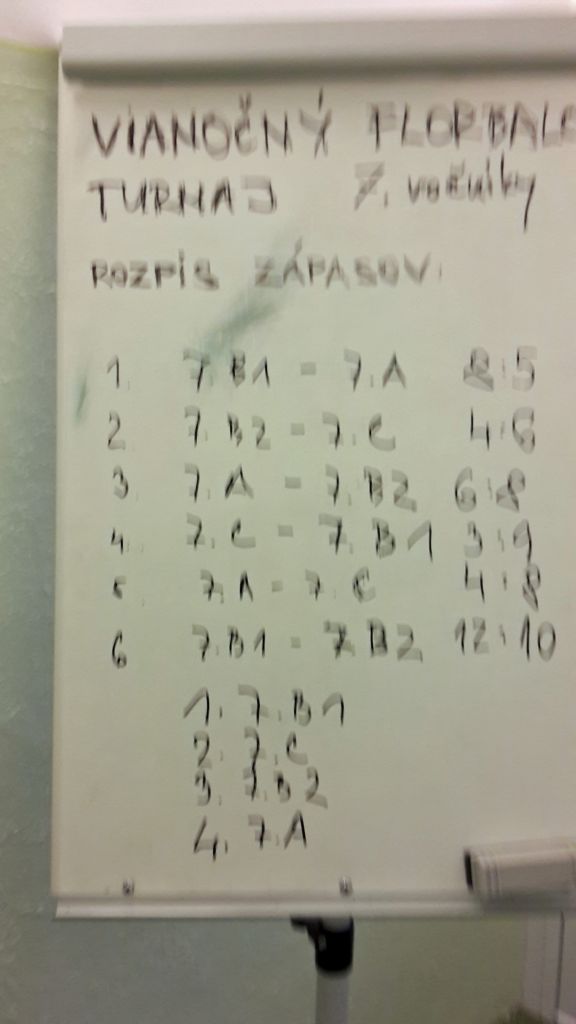 VIANOČNÝ FLORBALO
TURNAJ 7. ročníky
ROZPIS ZÁPASOV:
1. 7.B1 - 7.A 8:5
2 7.B2 - 7.C 4:6
3 7.A - 7.B2 6:8
4. 7.C - 7.B1 3:9
5 7.A - 7.C 4:8
6 7.B1 - 7.B2 12:10
1. 7.B1
2. 7.C
3. 7.B2
4. 7.A